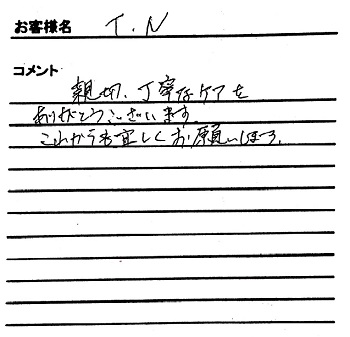 お客様名 T.N
コメント
親切、丁寧なケアを
ありがとうございます。
これからも宜しくお願いします。